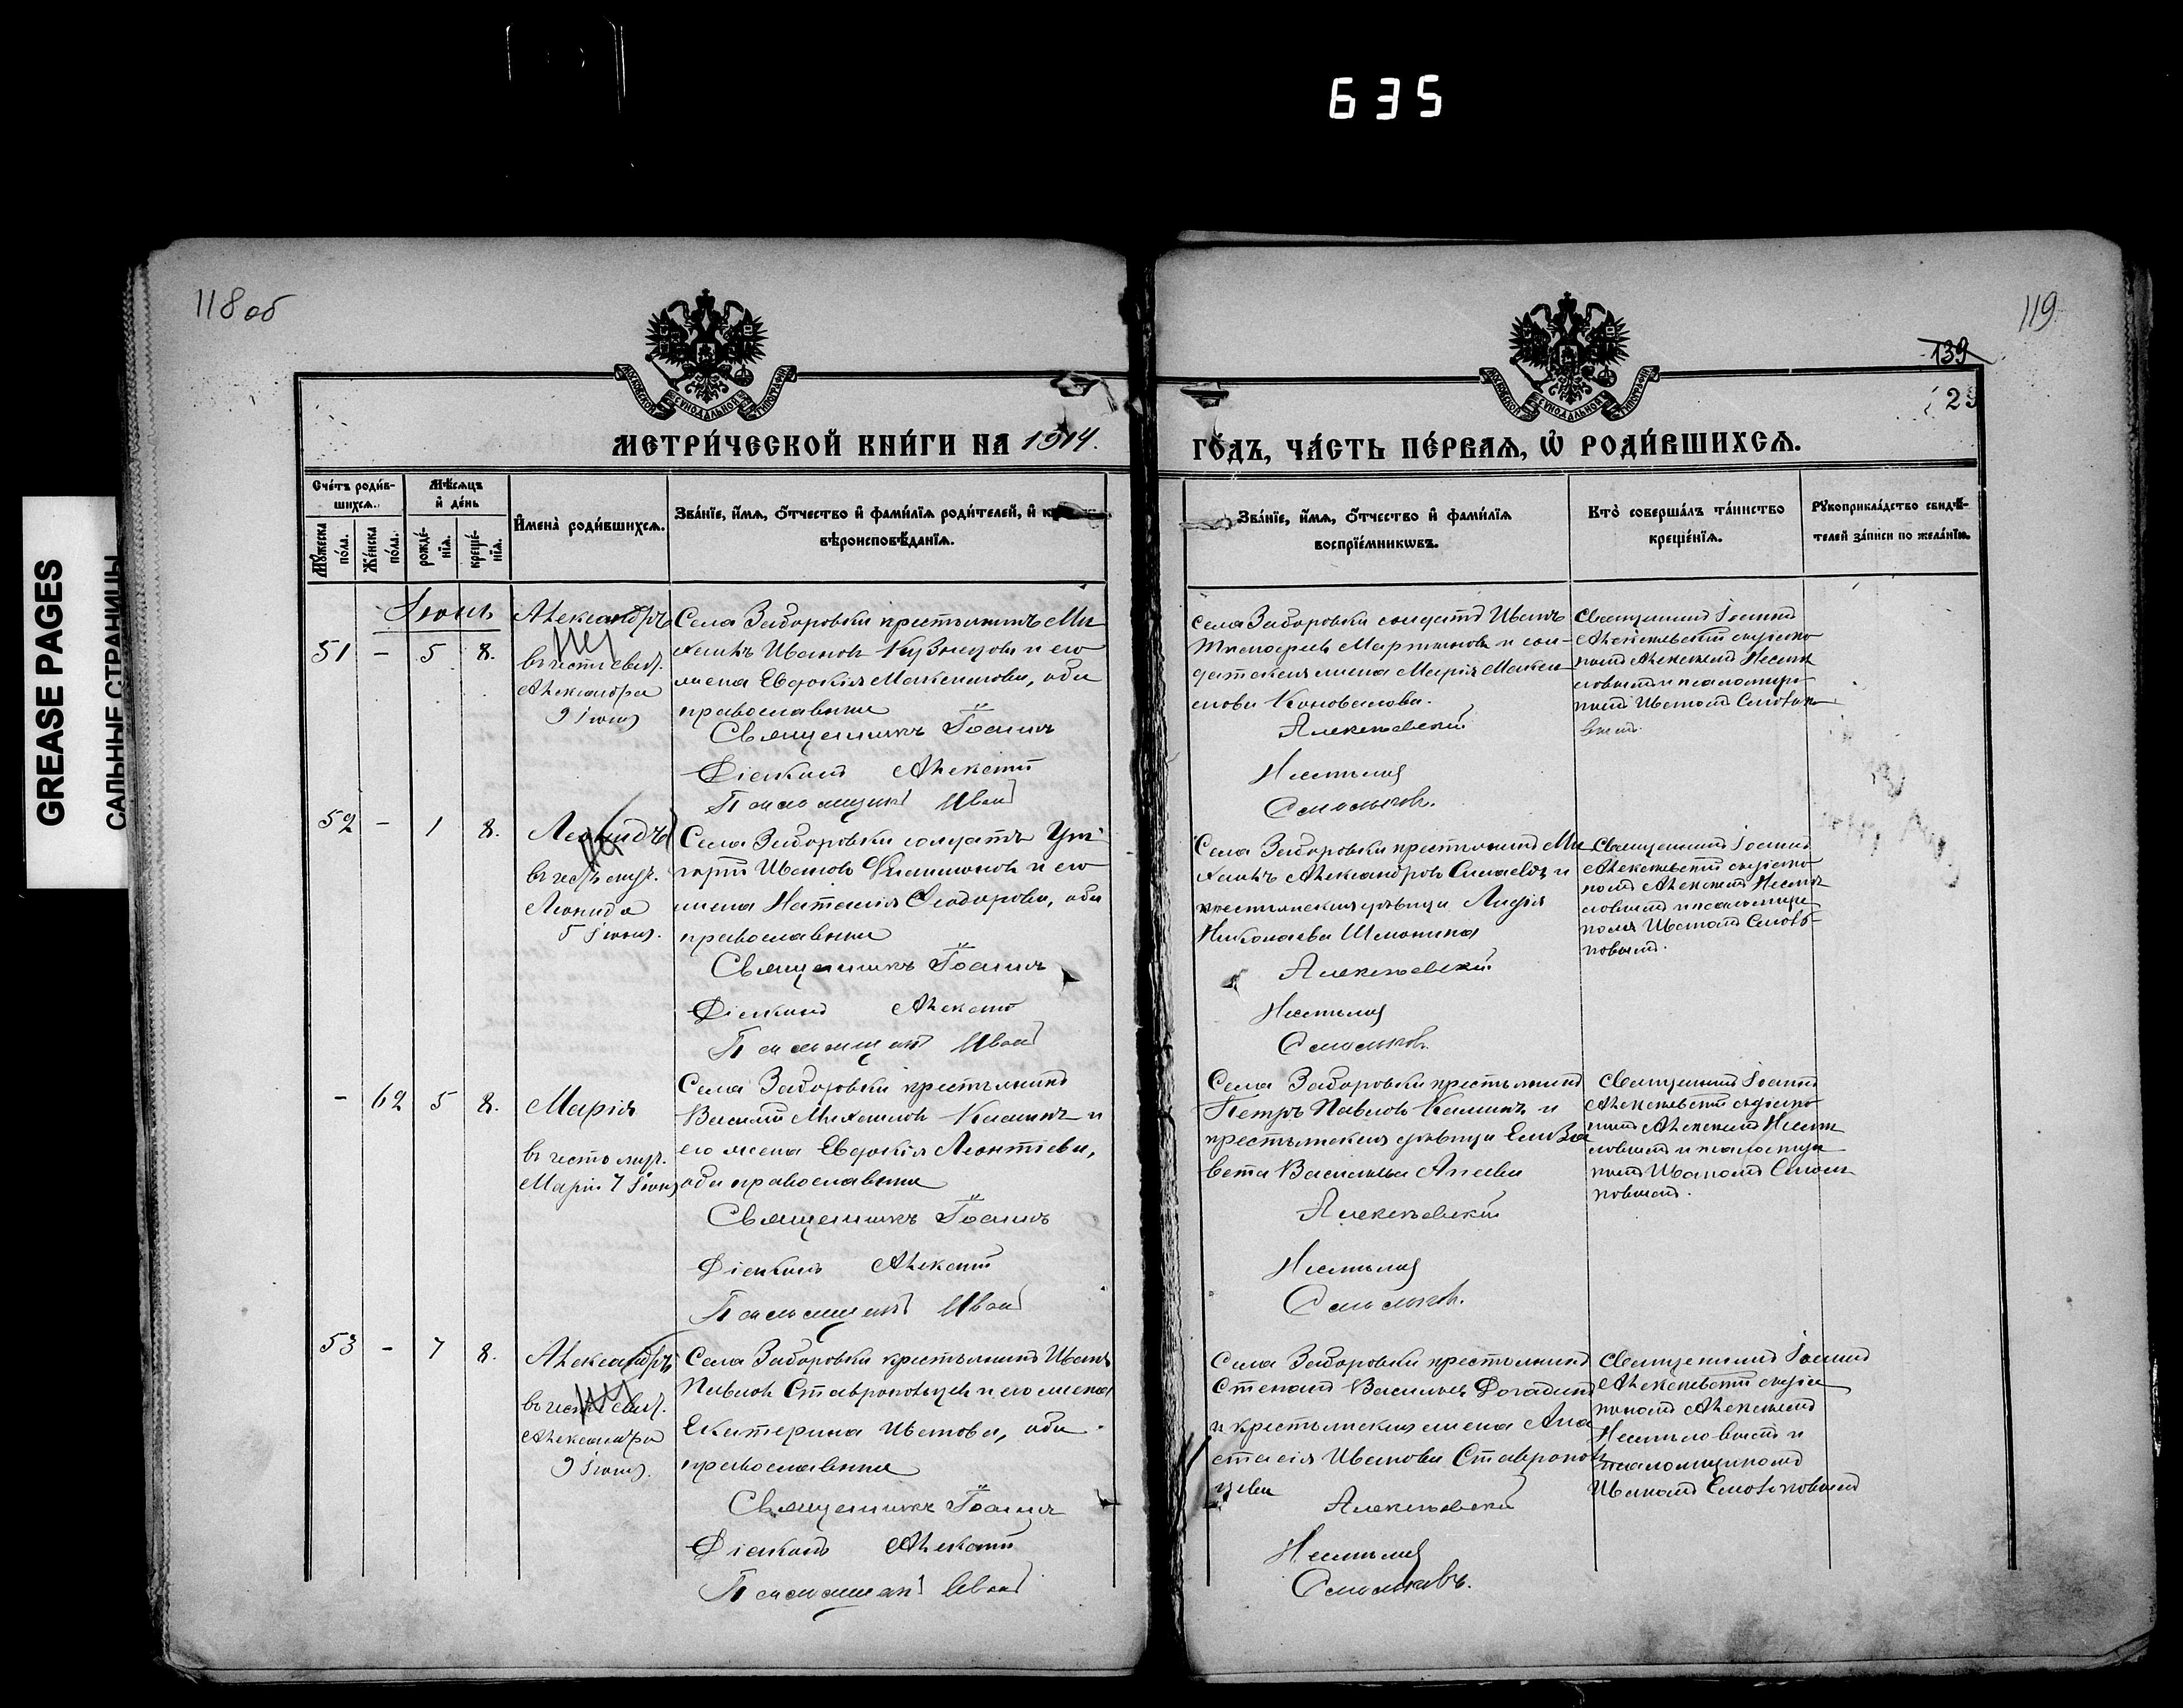 635
GREASE PAGES
САЛЬНЫЕ СТРАНИЦЫ
118 об
119
139
29
МОСКОВСКОЙ СѴНОДАЛЬНОЙ ТИПОГРАФІИ
МОСКОВСКОЙ СѴНОДАЛЬНОЙ ТИПОГРАФІИ
МЕТРИ́ЧЕСКОЙ КНИ́ГИ НА 1914.
ГО́ДЪ, ЧА́СТЬ ПЕ́РВАЯ, Ѡ҆ РОДИ́ВШИХСѦ.
Сче́тъ роди́в-
шихсѧ.
Мꙋ́жеска по́ла.
Же́нска по́ла.
Мѣ́сѧцъ
и҆ де́нь
рожде́-нїѧ.
креще́-нїѧ.
И҆мена̀ роди́вшихсѧ.
Зва́нїе, и҆́мѧ, ѻ҆́тчество и҆ фами́лїѧ роди́телей, и҆
вѣроисповѣ́данїѧ.
Зва́нїе, и҆́мѧ, ѻ҆́тчество и҆ фами́лїѧ
воспрїе́мникѡвъ.
Кто̀ соверша́лъ та́инство
креще́нїѧ.
Рꙋкоприкла́дство свидѣ́-
телей за́писи по жела́нїю.
Іюнь
51 - 5 8.
Александръ
въ честь свщ.
Александра
9 Іюня
Села Заборовки крестьянинъ Ми
хаилъ Ивановъ Кузнецовъ и его
жена Евдокія Максимова, оба
православные
Священникъ Іоаннъ
Діаконъ Алексѣй
Псаломщикъ Иванъ
Села Заборовки солдатъ Иванъ
Мартыновъ и сол-
датская жена Марія Макси
мова Коновалова.
Алексѣевскій
Несмѣловъ
Смольковъ.
Священникъ Іоаннъ
Алексѣевскій съ діако
номъ Алексѣемъ Несмѣ
ловымъ и псаломщи
комъ Иваномъ Смолько
вымъ.
52 - 1 8.
Леонидъ
въ честь муч.
Леонида
5 Іюня.
Села Заборовки солдатъ Гри
горій Ивановъ Филимоновъ и его
жена Наталія Ѳеодорова, оба
православные
Священникъ Іоаннъ
Діаконъ Алексѣй
Псаломщикъ Иванъ
Села Заборовки крестьянинъ Ми
хаилъ Александровъ и
крестьянская дѣвица Лидія
Николаева Шмонина
Алексѣевскій
Несмѣловъ
Смольковъ.
Священникъ Іоаннъ
Алексѣевскій съ діако
номъ Алексѣемъ Несмѣ
ловымъ и псаломщи
комъ Иваномъ Смоль
ковымъ.
- 62 5 8.
Марія
въ честь муч.
Маріи 7 Іюня
Села Заборовки крестьянинъ
Василій Михаиловъ Калинъ и
его жена Евдокія Леонтіева,
оба православные
Священникъ Іоаннъ
Діаконъ Алексѣй
Псаломщикъ Иванъ
Села Заборовки крестьянинъ
Петръ Павловъ Калинъ и
крестьянская дѣвица Елиза
вета Васильева Агеева
Алексѣевскій
Несмѣловъ
Смольковъ.
Священникъ Іоаннъ
Алексѣевскій съ діако
номъ Алексѣемъ Несмѣ
ловымъ и псаломщи
комъ Иваномъ Смоль
ковымъ.
53 - 7 8.
Александръ
въ честь свщ.
Александра
9 Іюня.
Села Заборовки крестьянинъ Иванъ
Павловъ Ставропольцевъ и его жена
Екатерина Иванова, оба
православные
Священникъ Іоаннъ
Діаконъ Алексѣй
Псаломщикъ Иванъ
Села Заборовки крестьянинъ
Степанъ Васильевъ Догадинъ
и крестьянская жена Ана
стасія Иванова Ставрополь
цева
Алексѣевскій
Несмѣловъ
Смольковъ.
Священникъ Іоаннъ
Алексѣевскій съ діа
кономъ Алексѣемъ
Несмѣловымъ и
псаломщикомъ
Иваномъ Смольковымъ